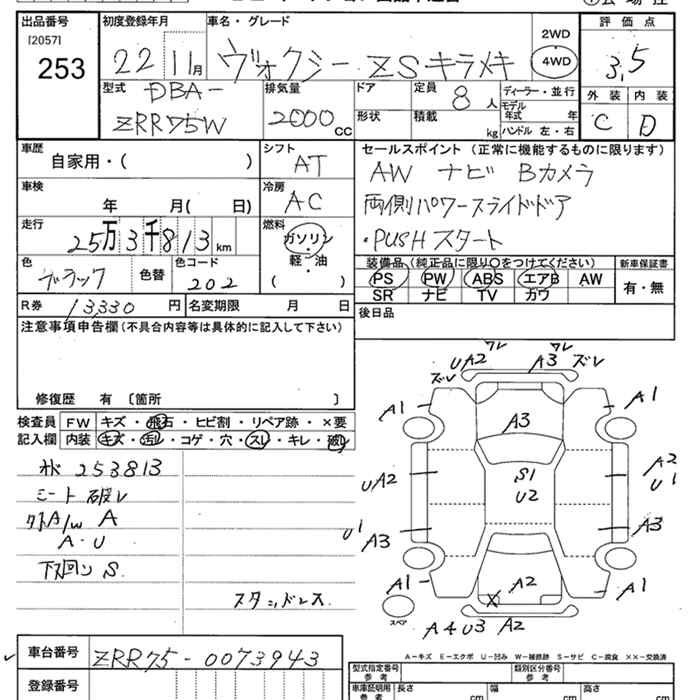 出品番号 初度登録年月 車名・グレード 評価点
[2057]
253
22 11月 ヴォクシー ZSキラメキ
2WD
4WD
3,5
型式 DBA-
ZRR75W
排気量
2000 CC
ドア
形状
定員 8 人
積載 kg
ディーラー・並行
モデル年式 年
ハンドル 左・右
外装 内装
C D
車歴
自家用・( )
シフト
AT
セールスポイント (正常に機能するものに限ります)
AW ナビ Bカメラ
両側パワースライドドア
・PUSHスタート
車検
年 月( 日)
冷房
AC
走行
25万3千813km
燃料
ガソリン
軽・油
( )
色
ブラック
色替
色コード
202
装備品 (純正品に限り○をつけてください)
PS PW ABS エアB AW
SR ナビ TV カワ
新車保証書
有・無
R券 13,330 円
名変期限 月 日
後日品
注意事項申告欄 (不具合内容等は具体的に記入して下さい)
修復歴 有 〔箇所 〕
検査員 FW キズ・飛石・ヒビ割・リペア跡・×要
記入欄 内装 キズ・汚レ・コゲ・穴・スレ・キレ・破レ
253813
シート 破レ
A/W A
A・U
下回り S
スタッドレス
ワレ ワレ
UA2 A3 ズレ
ズレ
A1 A1
A3
S1
U2
UA2 A2
U1
U1
A3 A3
A1 A2 A1
X
スペア
A4U3 A2
A－キズ E－エクボ U－凹み W－補修跡 S－サビ C－腐食 ××－交換済
車台番号 ZRR75-0073943
登録番号
型式指定番号
参考
類別区分番号
参考
車庫証明用
参考
長さ cm
幅 cm
高さ cm